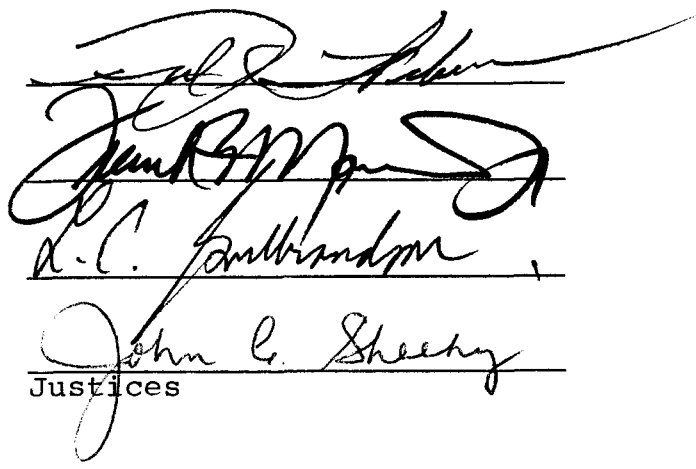 Frank B. Morrison Jr.
L.C. Gulbrandson
John C. Sheehy
Justices